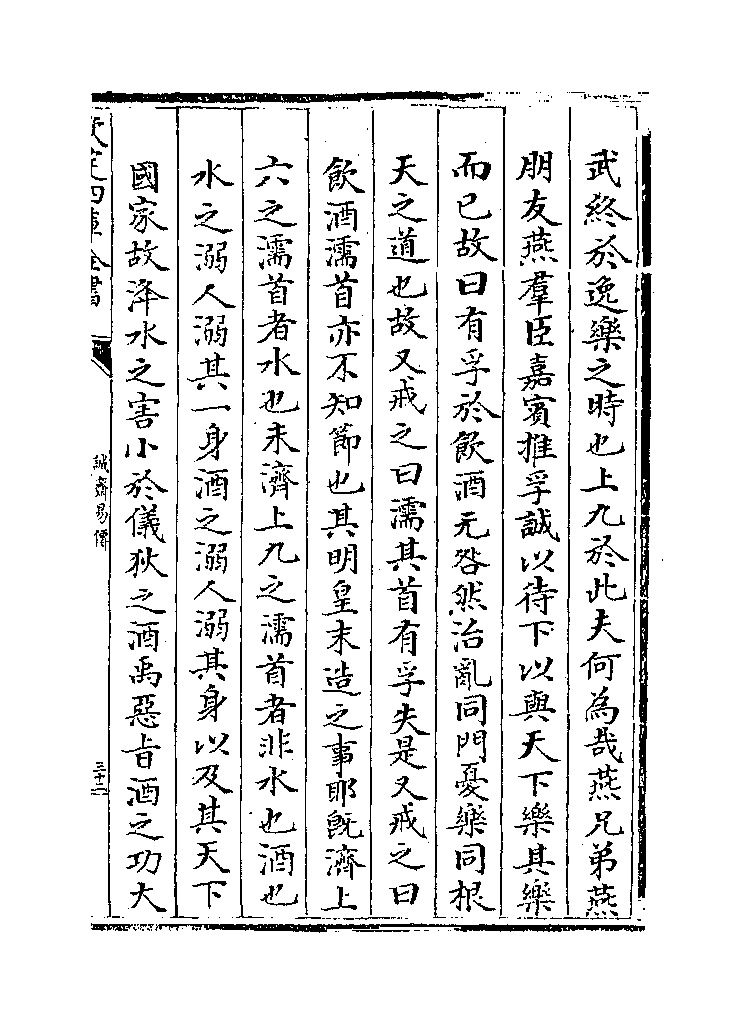 武終於逸樂之時也上九於此夫何為哉燕兄弟燕
朋友燕羣臣嘉賓推孚誠以待下以與天下樂其樂
而已故曰有孚於飲酒无咎然治亂同門憂樂同根
天之道也故又戒之曰濡其首有孚失是又戒之曰
飲酒濡首亦不知節也其明皇末造之事耶既濟上
六之濡首者水也未濟上九之濡首者非水也酒也
水之溺人溺其一身酒之溺人溺其身以及其天下
國家故洚水之害小於儀狄之酒禹惡旨酒之功大
欽定四庫全書
誠齋易傳
三十二